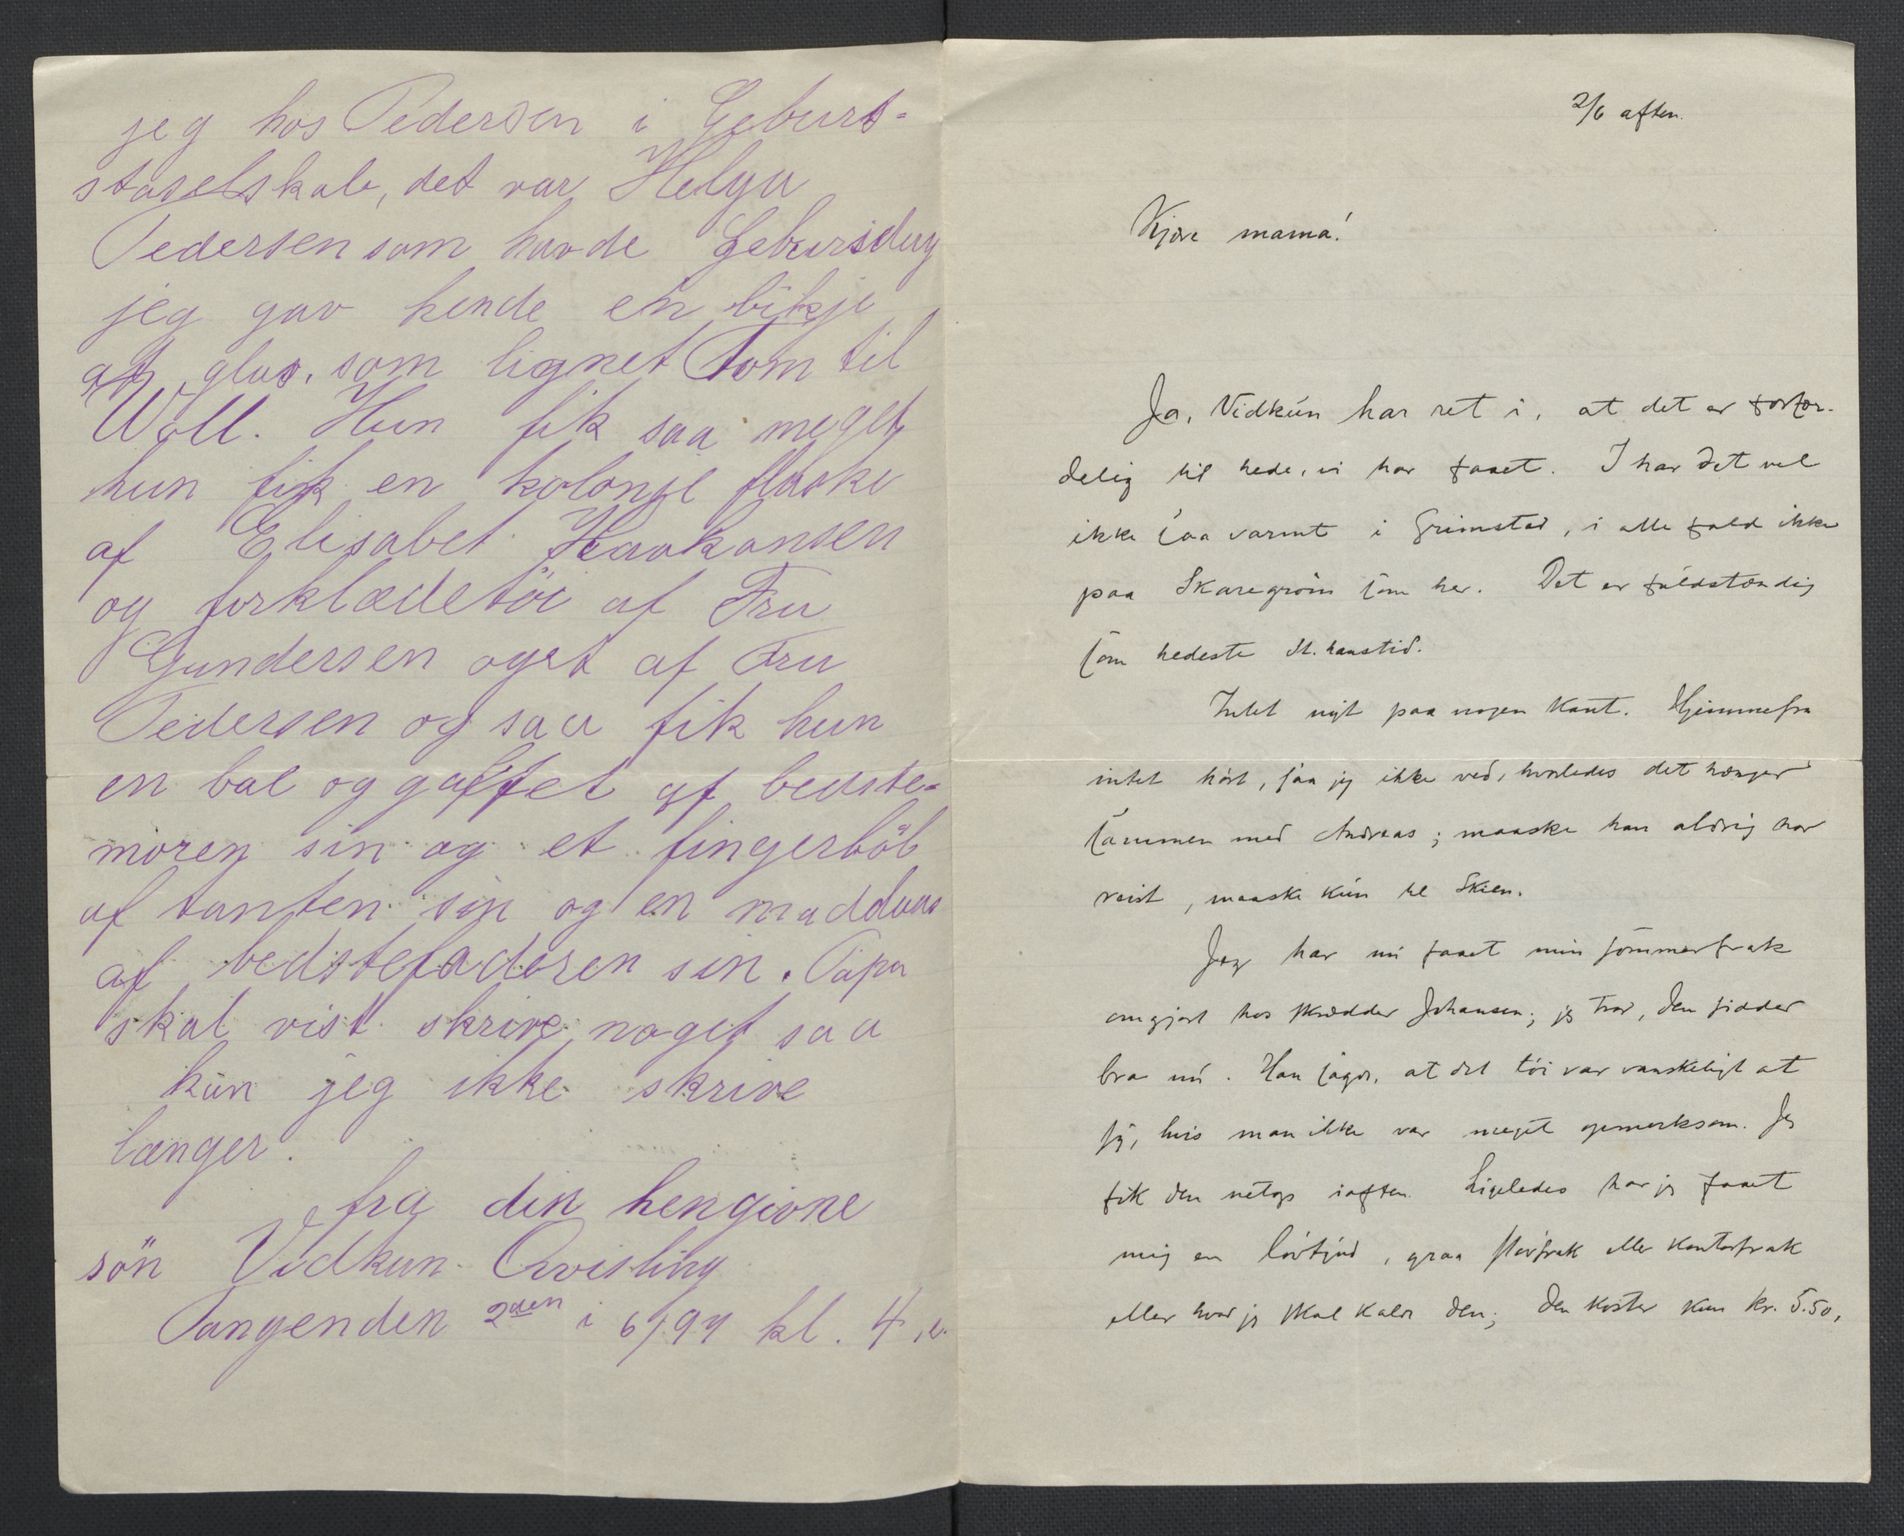 jeg hos Pedersen i Geburt-
staselskab, det var Helga
Pedersen som havde Gebursdag
jeg gav hende en bikje
af glas, som lignet Tom til
Woll. Hun fik saa meget
hun fik en kolonje flaske
af Elisabet Haakonsen
og forklædetöi af Fru
Gundersen ogst af Fru
Pedersen og saa fik hun
en bal og gaffel af bedste-
moren sin og et fingerböl
af tanten sin og en maddaas
af bedstefaderen sin. Papa
skal vist skrive noget saa
kan jeg ikke skrive
længer.
fra din hengivne
sön Vidkun Qvisling
Tangenden 2den i 6/94 kl. 4,e.
2/6 aften.
Kjære mama!
Ja, Vidkun har ret i, at det er forfær-
delig til hede, vi har faaet. I har det vel
ikke saa varmt i Grimstad, i alle fald ikke
paa Skaregrøm som her. Det er fuldstændig
som hedeste St. hanstid.
Intet nyt paa nogen kant. Hjemmefra
intet hört, saa jeg ikke ved, hvorledes det hænger
sammen med Andreas; maaske han aldrig har
reist, maaske kun til Skien.
Jeg har nu faaet min sommerfrak
omgjort hos skrædder Johansen; jeg tror, den sidder
bra nu. Han sagde, at det töi var vanskeligt at
sy, hvis man ikke var meget opmerksom. Jeg
fik den netop iaften. Ligeledes har jeg faaet
mig en , graa støvfrak eller kontorfrak
eller hvad jeg skal kalde den; den koster kun kr. 5.50,